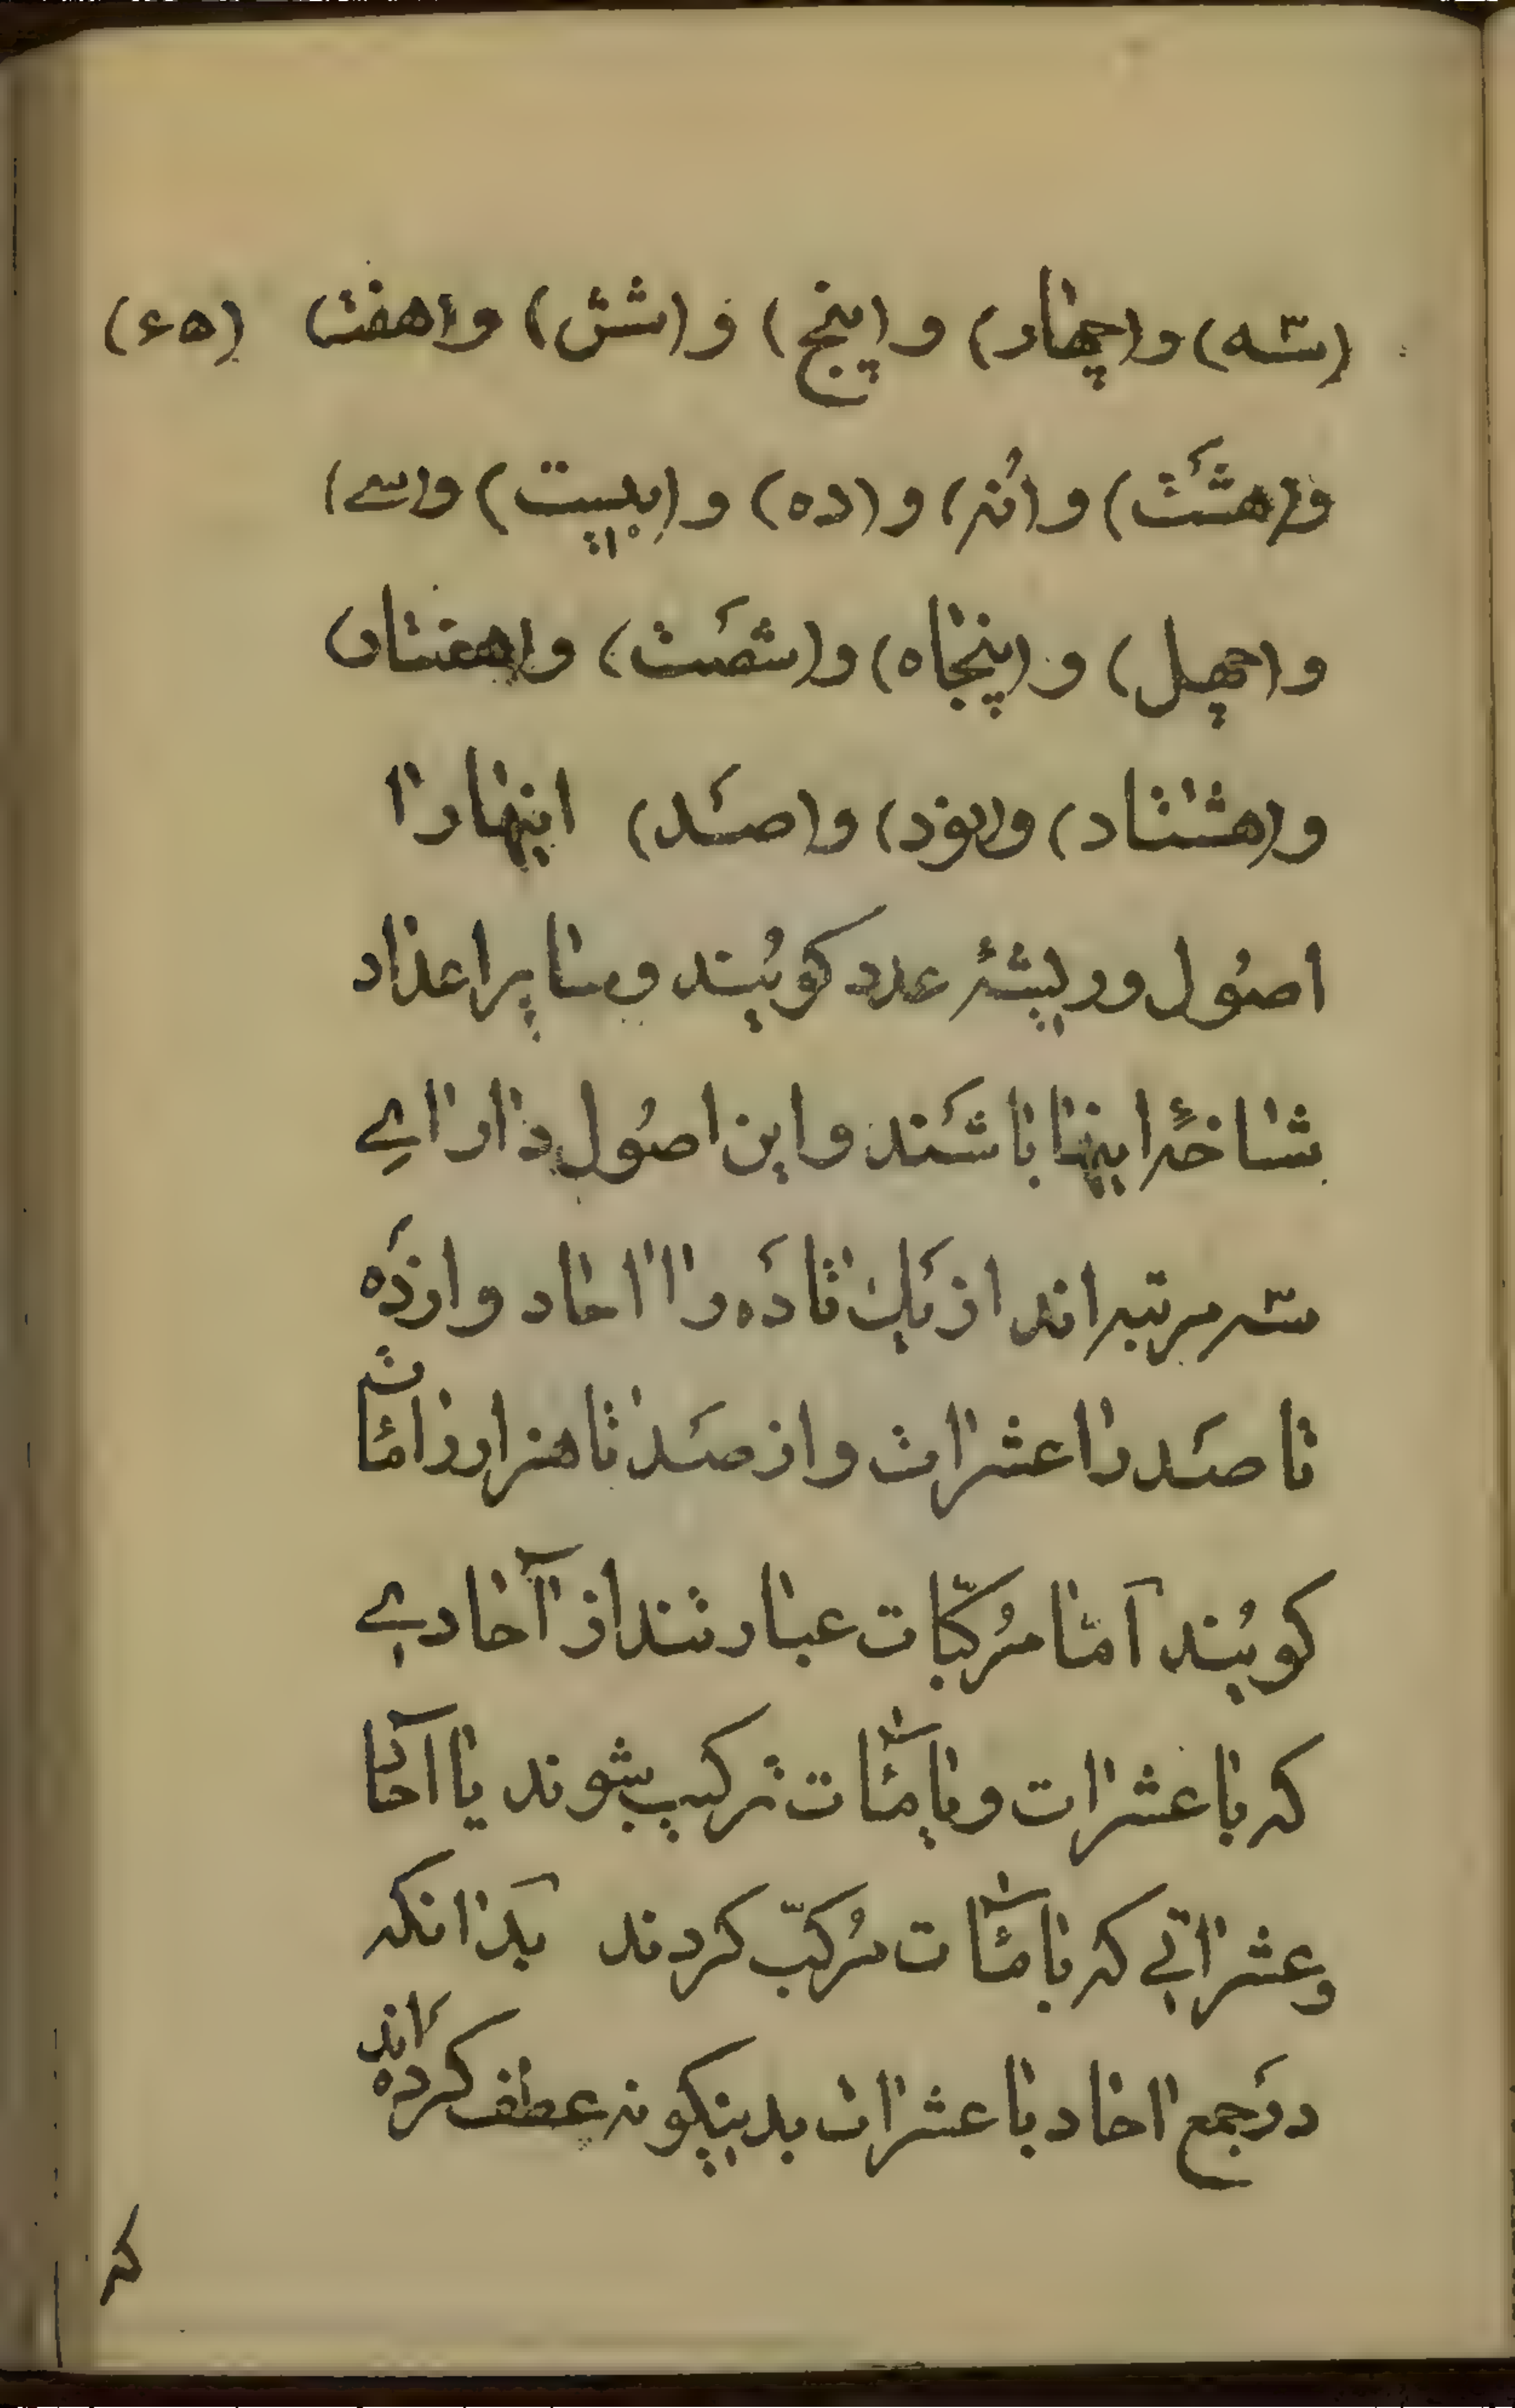 (سه) و(چهار) و(پنج) و(شش) و(هفت) (۶۵)
و(هشت) و(نُه) و(ده) و(بیست) و(سے)
و(چهل) و(پنجاه) و(شصَت) و(هفتاد)
و(هشتاد) و(نود) و(صَد) اینها را
اصُول و ریشهٔ عدد کویُند و سایر اعداد
شاخهٔ اینها باشَند و این اصُول داراےِ
سه مرتبه اند از یَک تا دَه را احاد و از دَه
تا صَد را عشرات و از صَد تا هزار را مئات
کویُند امّا مُرکّبات عبارتند از آحادے
که با عشرات و یا مئآت ترکیب شوند یا آحاد
و عشراتی که با مئآت مُرکّب کردند بدَانکه
دَر جمع احاد با عشرات بدینگونه عطف کرده اَند
که